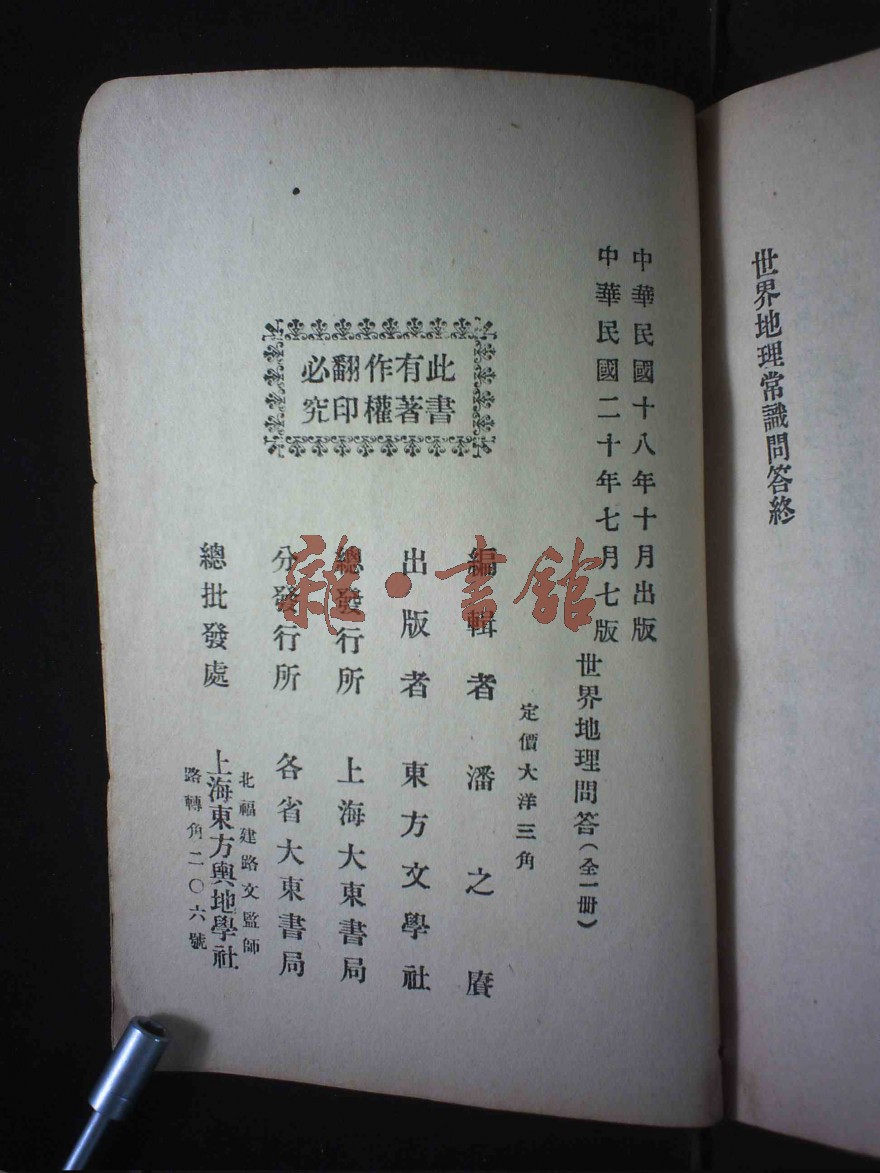 世界地理常識問答終
中華民國十八年十月出版
中華民國二十年七月七版
世界地理問答(全一冊)
定價大洋三角
編輯者 潘之賡
出版者 東方文學社
總發行所 上海大東書局
分發行所 各省大東書局
總批發處 上海東方輿地學社
北福建路文監師
路轉角二〇六號
此書有著作權翻印必究
雜·書館